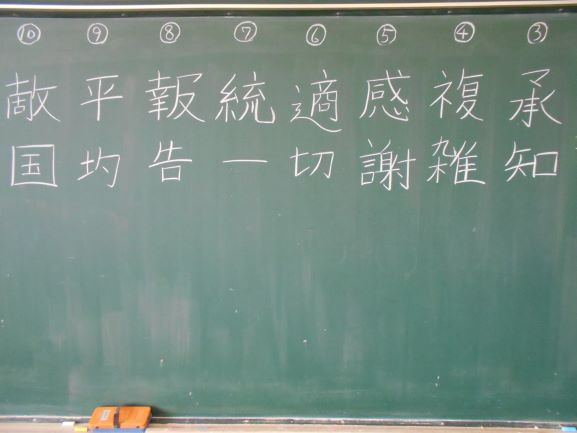 ③承知
④複雑
⑤感謝
⑥適切
⑦統一
⑧報告
⑨平均
⑩敵国